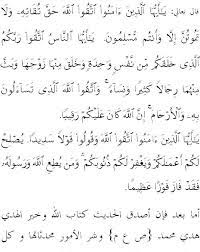 قال تعالى: يَٰٓأَيُّهَا ٱلَّذِينَ ءَامَنُوا۟ ٱتَّقُوا۟ ٱللَّهَ حَقَّ تُقَاتِهِۦ وَلَا
تَمُوتُنَّ إِلَّا وَأَنتُم مُّسْلِمُونَ. يَٰٓأَيُّهَا ٱلنَّاسُ ٱتَّقُوا۟ رَبَّكُمُ
ٱلَّذِى خَلَقَكُم مِّن نَّفْسٍ وَٰحِدَةٍ وَخَلَقَ مِنْهَا زَوْجَهَا وَبَثَّ
مِنْهُمَا رِجَالًا كَثِيرًا وَنِسَآءً ۚ وَٱتَّقُوا۟ ٱللَّهَ ٱلَّذِى تَسَآءَلُونَ
بِهِۦ وَٱلْأَرْحَامَ ۚ إِنَّ ٱللَّهَ كَانَ عَلَيْكُمْ رَقِيبًا.
يَٰٓأَيُّهَا ٱلَّذِينَ ءَامَنُوا۟ ٱتَّقُوا۟ ٱللَّهَ وَقُولُوا۟ قَوْلًا سَدِيدًا. يُصْلِحْ
لَكُمْ أَعْمَٰلَكُمْ وَيَغْفِرْ لَكُمْ ذُنُوبَكُمْ ۗ وَمَن يُطِعِ ٱللَّهَ وَرَسُولَهُۥ
فَقَدْ فَازَ فَوْزًا عَظِيمًا.
أما بعد فإن أصدق الحديث كتاب الله وخير الهدي
هدي محمد (ص ع م) وشر الأمور محدثاتها وكل